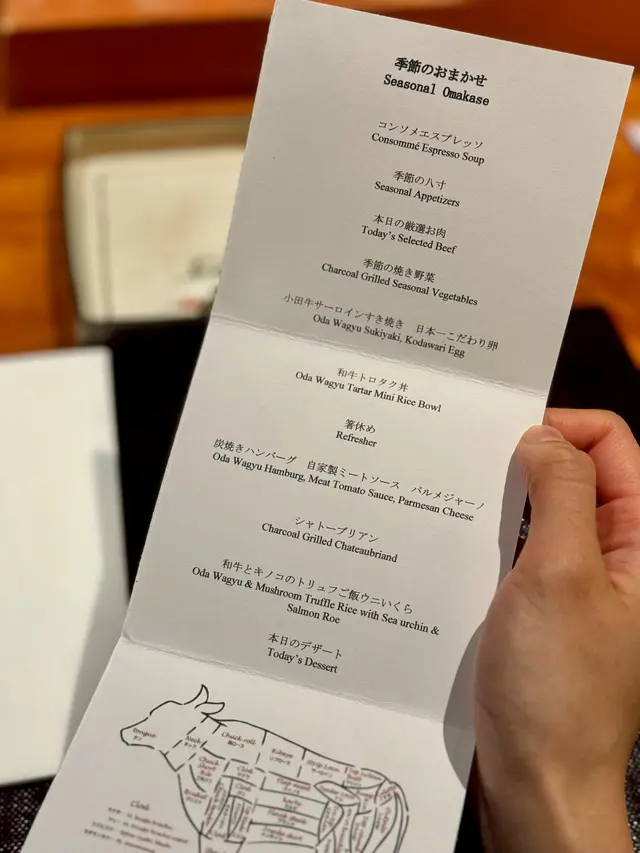 季節のおまかせ
Seasonal Omakase
コンソメエスプレッソ
Consommé Espresso Soup
季節の八寸
Seasonal Appetizers
本日の厳選お肉
Today's Selected Beef
季節の焼き野菜
Charcoal Grilled Seasonal Vegetables
小田牛サーロインすき焼き 日本一こだわり卵
Oda Wagyu Sukiyaki, Kodawari Egg
和牛トロタク丼
Oda Wagyu Tartar Mini Rice Bowl
箸休め
Refresher
炭焼きハンバーグ 自家製ミートソース パルメジャーノ
Oda Wagyu Hamburg, Meat Tomato Sauce, Parmesan Cheese
シャトーブリアン
Charcoal Grilled Chateaubriand
和牛とキノコのトリュフご飯ウニいくら
Oda Wagyu & Mushroom Truffle Rice with Sea urchin &
Salmon Roe
本日のデザート
Today's Dessert
Tongue
タン
Neck
ネック
Chuck-roll
肩ロース
Ribeye
リブロース
Strip Loin
サーロイン
Chuck
Short
Rib
Clod